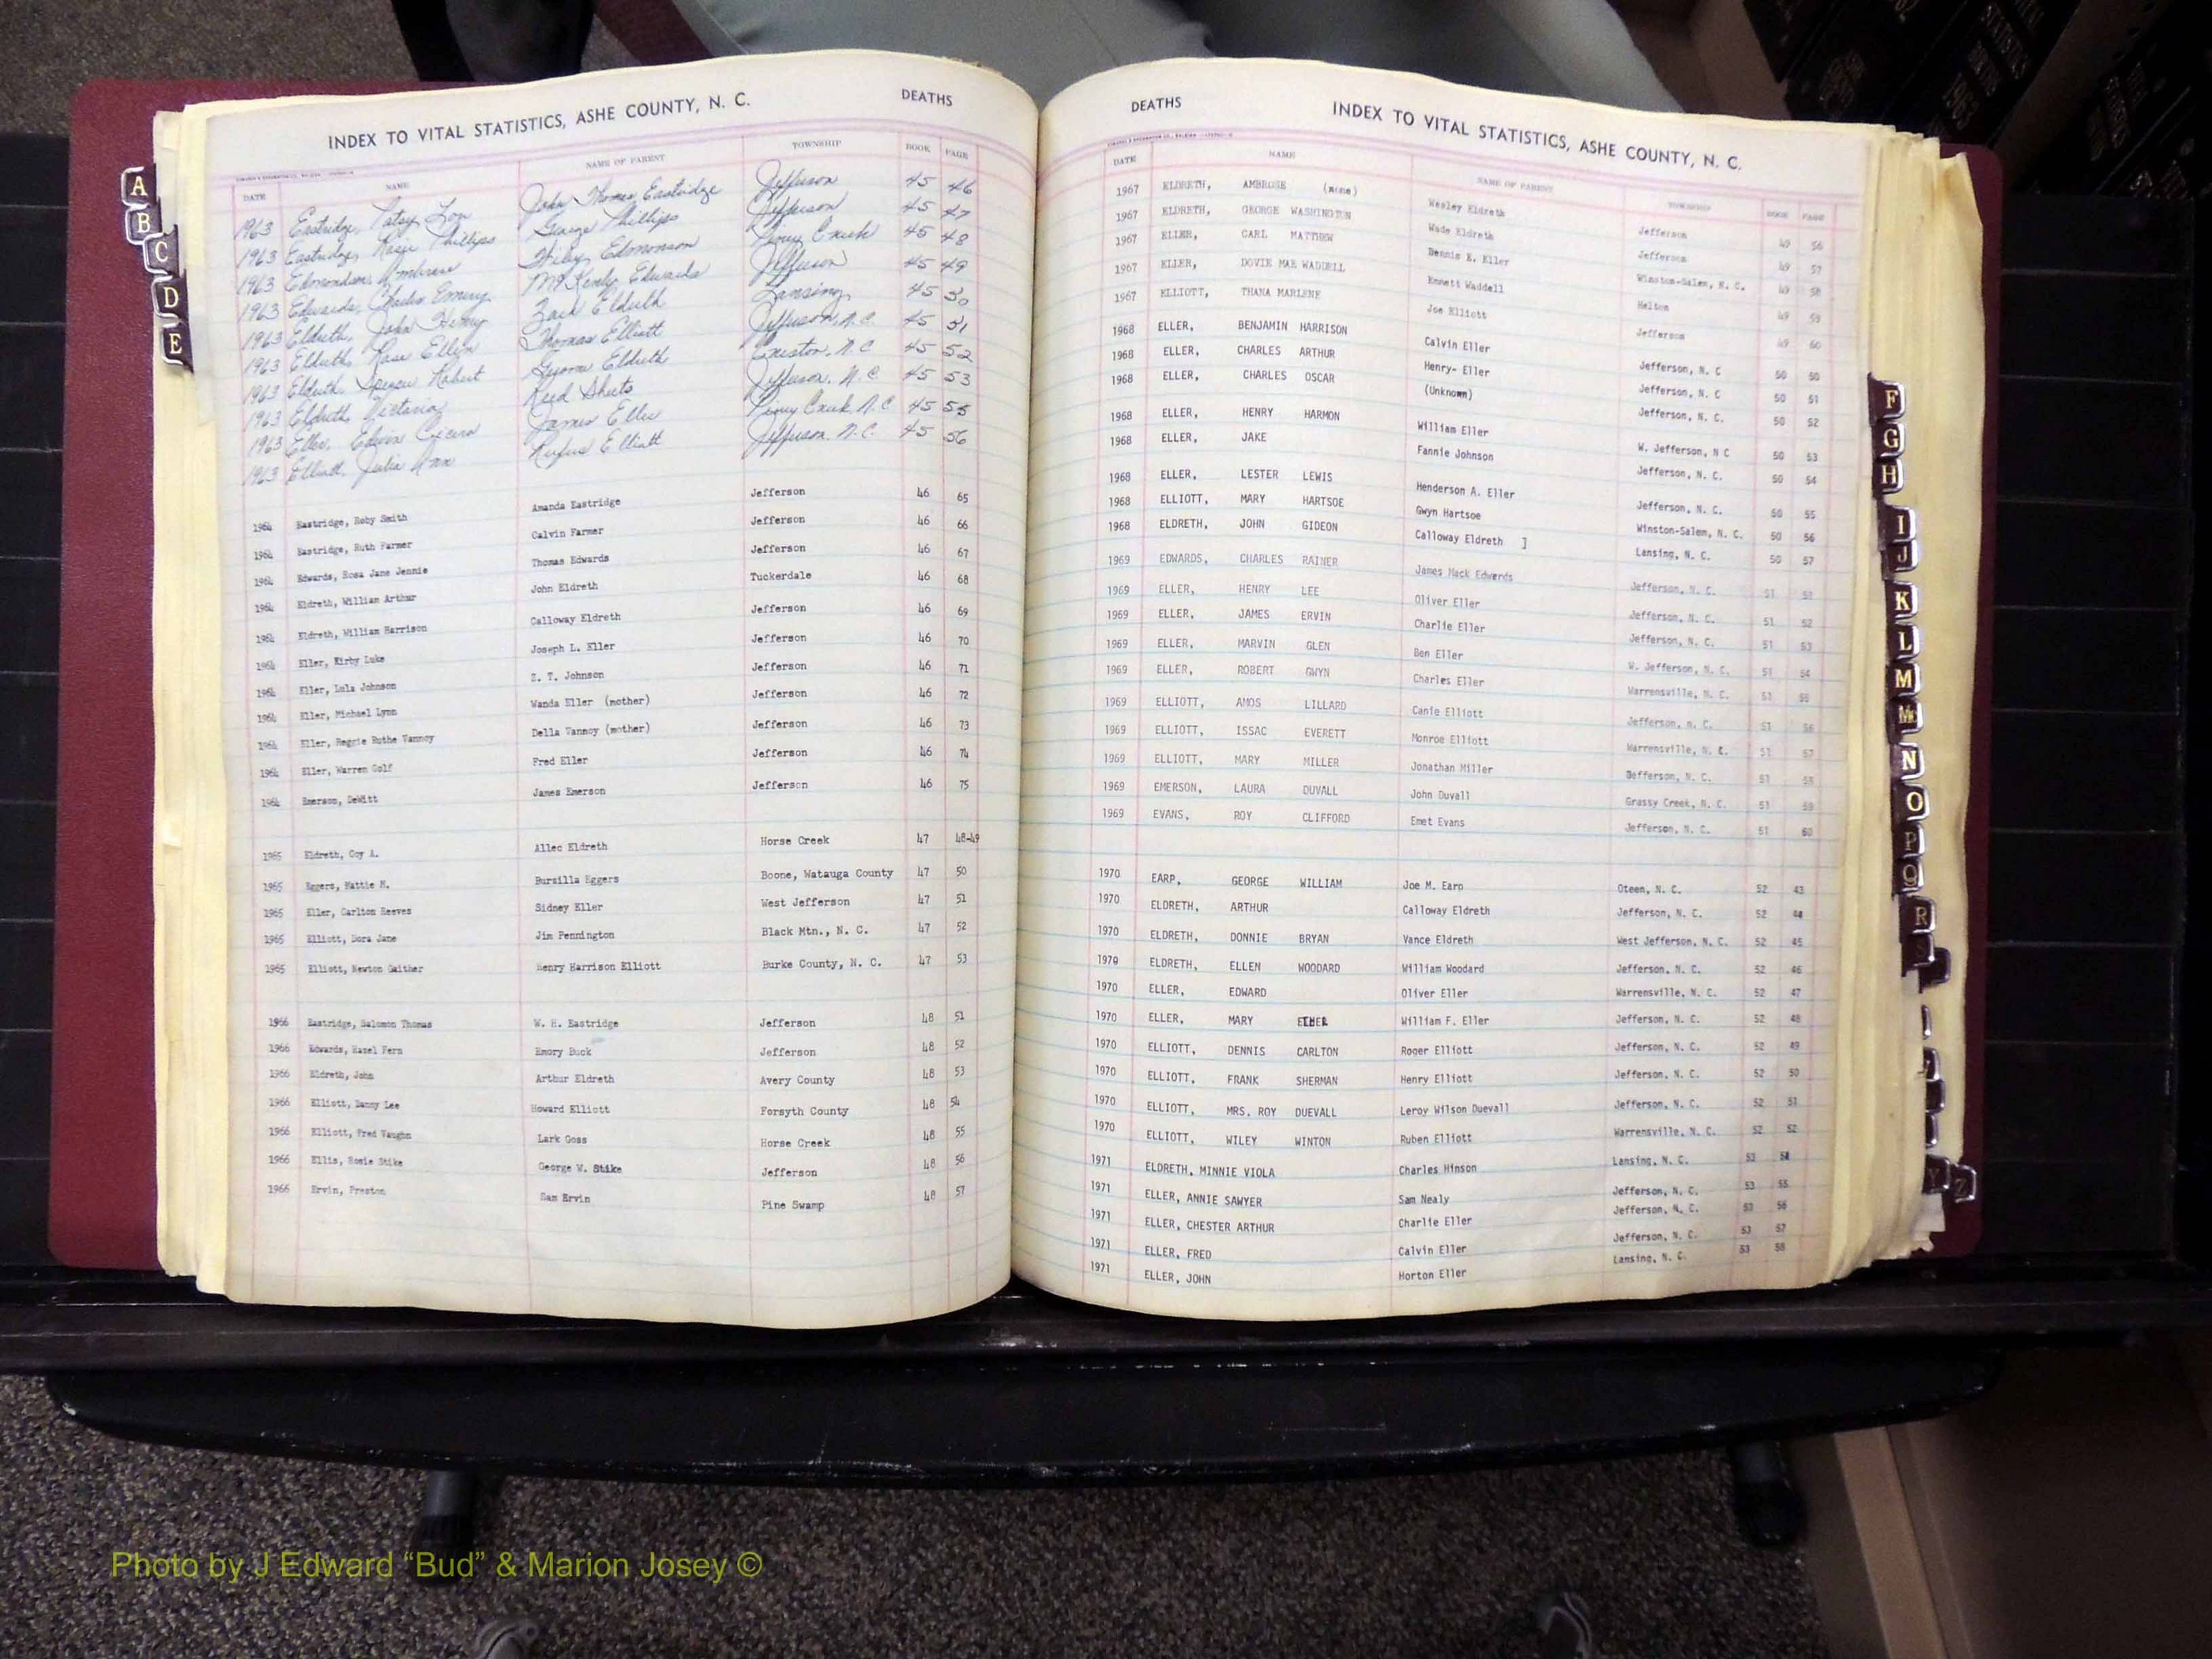 INDEX TO VITAL STATISTICS, ASHE COUNTY, N. C. DEATHS
DATE NAME NAME OF PARENT TOWNSHIP BOOK PAGE
1963 Eastridge, Patsy Lou John Thomas Eastridge Jefferson 45 46
1963 Eastridge, Rosie Phillips George Phillips Jefferson 45 47
1963 Edmondson, Ambrose Wiley Edmonson Piney Creek 45 48
1963 Edwards, Charlie Emery McKenly Edwards Jefferson 45 49
1963 Eldreth, John Henry Zack Eldreth Lansing 45 50
1963 Eldreth, Rose Ellen Thomas Elliott Jefferson, N.C. 45 51
1963 Eldreth, Spencer Robert Eldreth Creston, N.C 45 52
1963 Eldreth, Victoria Reed Sheets Jefferson, N.C 45 53
1963 Eller, Edwin Cicero James Eller Piney Creek N.C 45 55
1963 Elliott, Julia Ann Rufus Elliott Jefferson, N.C. 45 56
1964 Eastridge, Roby Smith Amanda Eastridge Jefferson 46 65
1964 Eastridge, Ruth Farmer Calvin Farmer Jefferson 46 66
1964 Edwards, Rosa Jane Jennie Thomas Edwards Jefferson 46 67
1964 Eldreth, William Arthur John Eldreth Tuckerdale 46 68
1964 Eldreth, William Harrison Calloway Eldreth Jefferson 46 69
1964 Eller, Kirby Luke Joseph L. Eller Jefferson 46 70
1964 Eller, Lula Johnson Z. T. Johnson Jefferson 46 71
1964 Eller, Michael Lynn Wanda Eller (mother) Jefferson 46 72
1964 Eller, Reggie Ruthe Vannoy Della Vannoy (mother) Jefferson 46 73
1964 Eller, Warren Golf Fred Eller Jefferson 46 74
1964 Emerson, DeWitt James Emerson Jefferson 46 75
1965 Eldreth, Coy A. Allec Eldreth Horse Creek 47 48-49
1965 Eggers, Hattie M. Burzilla Eggers Boone, Watauga County 47 50
1965 Eller, Carlton Reeves Sidney Eller West Jefferson 47 51
1965 Elliott, Dora Jane Jim Pennington Black Mtn., N. C. 47 52
1965 Elliott, Newton Gaither Henry Harrison Elliott Burke County, N. C. 47 53
1966 Eastridge, Salomon Thomas W. H. Eastridge Jefferson 48 51
1966 Edwards, Hazel Fern Emory Buck Jefferson 48 52
1966 Eldreth, John Arthur Eldreth Avery County 48 53
1966 Elliott, Danny Lee Howard Elliott Forsyth County 48 54
1966 Elliott, Fred Vaughn Lark Goss Horse Creek 48 55
1966 Ellis, Rosie Stike George W. Stike Jefferson 48 56
1966 Ervin, Preston Sam Ervin Pine Swamp 48 57
DEATHS INDEX TO VITAL STATISTICS, ASHE COUNTY, N. C.
DATE NAME NAME OF PARENT TOWNSHIP BOOK PAGE
1967 ELDRETH, AMBROSE (none) Wesley Eldreth Jefferson 49 56
1967 ELDRETH, GEORGE WASHINGTON Wade Eldreth Jefferson 49 57
1967 ELLER, CARL MATTHEW Dennis E. Eller Winston-Salem, N. C. 49 58
1967 ELLER, DOVIE MAE WADDELL Emmett Waddell Helton 49 59
1967 ELLIOTT, THANA MARLENE Joe Elliott Jefferson 49 60
1968 ELLER, BENJAMIN HARRISON Calvin Eller Jefferson, N. C 50 50
1968 ELLER, CHARLES ARTHUR Henry- Eller Jefferson, N. C 50 51
1968 ELLER, CHARLES OSCAR (Unknown) Jefferson, N. C. 50 52
1968 ELLER, HENRY HARMON William Eller W. Jefferson, N C 50 53
1968 ELLER, JAKE Fannie Johnson Jefferson, N. C. 50 54
1968 ELLER, LESTER LEWIS Henderson A. Eller Jefferson, N. C. 50 55
1968 ELLIOTT, MARY HARTSOE Gwyn Hartsoe Winston-Salem, N. C. 50 56
1968 ELDRETH, JOHN GIDEON Calloway Eldreth ] Lansing, N. C. 50 57
1969 EDWARDS, CHARLES RAINER James Mack Edwards Jefferson, N. C. 51 51
1969 ELLER, HENRY LEE Oliver Eller Jefferson, N. C. 51 52
1969 ELLER, JAMES ERVIN Charlie Eller Jefferson, N. C. 51 53
1969 ELLER, MARVIN GLEN Ben Eller W. Jefferson, N. C. 51 54
1969 ELLER, ROBERT GWYN Charles Eller Warrensville, N. C. 51 55
1969 ELLIOTT, AMOS LILLARD Canie Elliott Jefferson, N. C. 51 56
1969 ELLIOTT, ISSAC EVERETT Monroe Elliott Warrensville, N. C. 51 57
1969 ELLIOTT, MARY MILLER Jonathan Miller Jefferson, N. C. 51 58
1969 EMERSON, LAURA DUVALL John Duvall Grassy Creek, N. C. 51 59
1969 EVANS, ROY CLIFFORD Emet Evans Jefferson, N. C. 51 60
1970 EARP, GEORGE WILLIAM Joe M. Earp Oteen, N. C. 52 43
1970 ELDRETH, ARTHUR Calloway Eldreth Jefferson, N. C. 52 44
1970 ELDRETH, DONNIE BRYAN Vance Eldreth West Jefferson, N. C. 52 45
1970 ELDRETH, ELLEN WOODARD William Woodard Jefferson, N. C. 52 46
1970 ELLER, EDWARD Oliver Eller Warrensville, N. C. 52 47
1970 ELLER, MARY ETHEL William F. Eller Jefferson, N. C. 52 48
1970 ELLIOTT, DENNIS CARLTON Roger Elliott Jefferson, N. C. 52 49
1970 ELLIOTT, FRANK SHERMAN Henry Elliott Jefferson, N. C. 52 50
1970 ELLIOTT, MRS. ROY DUEVALL Leroy Wilson Duevall Jefferson, N. C. 52 51
1970 ELLIOTT, WILEY WINTON Ruben Elliott Warrensville, N. C. 52 52
1971 ELDRETH, MINNIE VIOLA Charles Hinson Lansing, N. C. 53 54
1971 ELLER, ANNIE SAWYER Sam Nealy Jefferson, N. C. 53 55
1971 ELLER, CHESTER ARTHUR Charlie Eller Jefferson, N. C. 53 56
1971 ELLER, FRED Calvin Eller Jefferson, N. C. 53 57
1971 ELLER, JOHN Horton Eller Lansing, N. C. 53 58
A
B
C
D
E
F
G
H
I
J
K
L
M
Mc
N
O
P
Q
R
Y
Z
Photo by J Edward “Bud” & Marion Josey ©